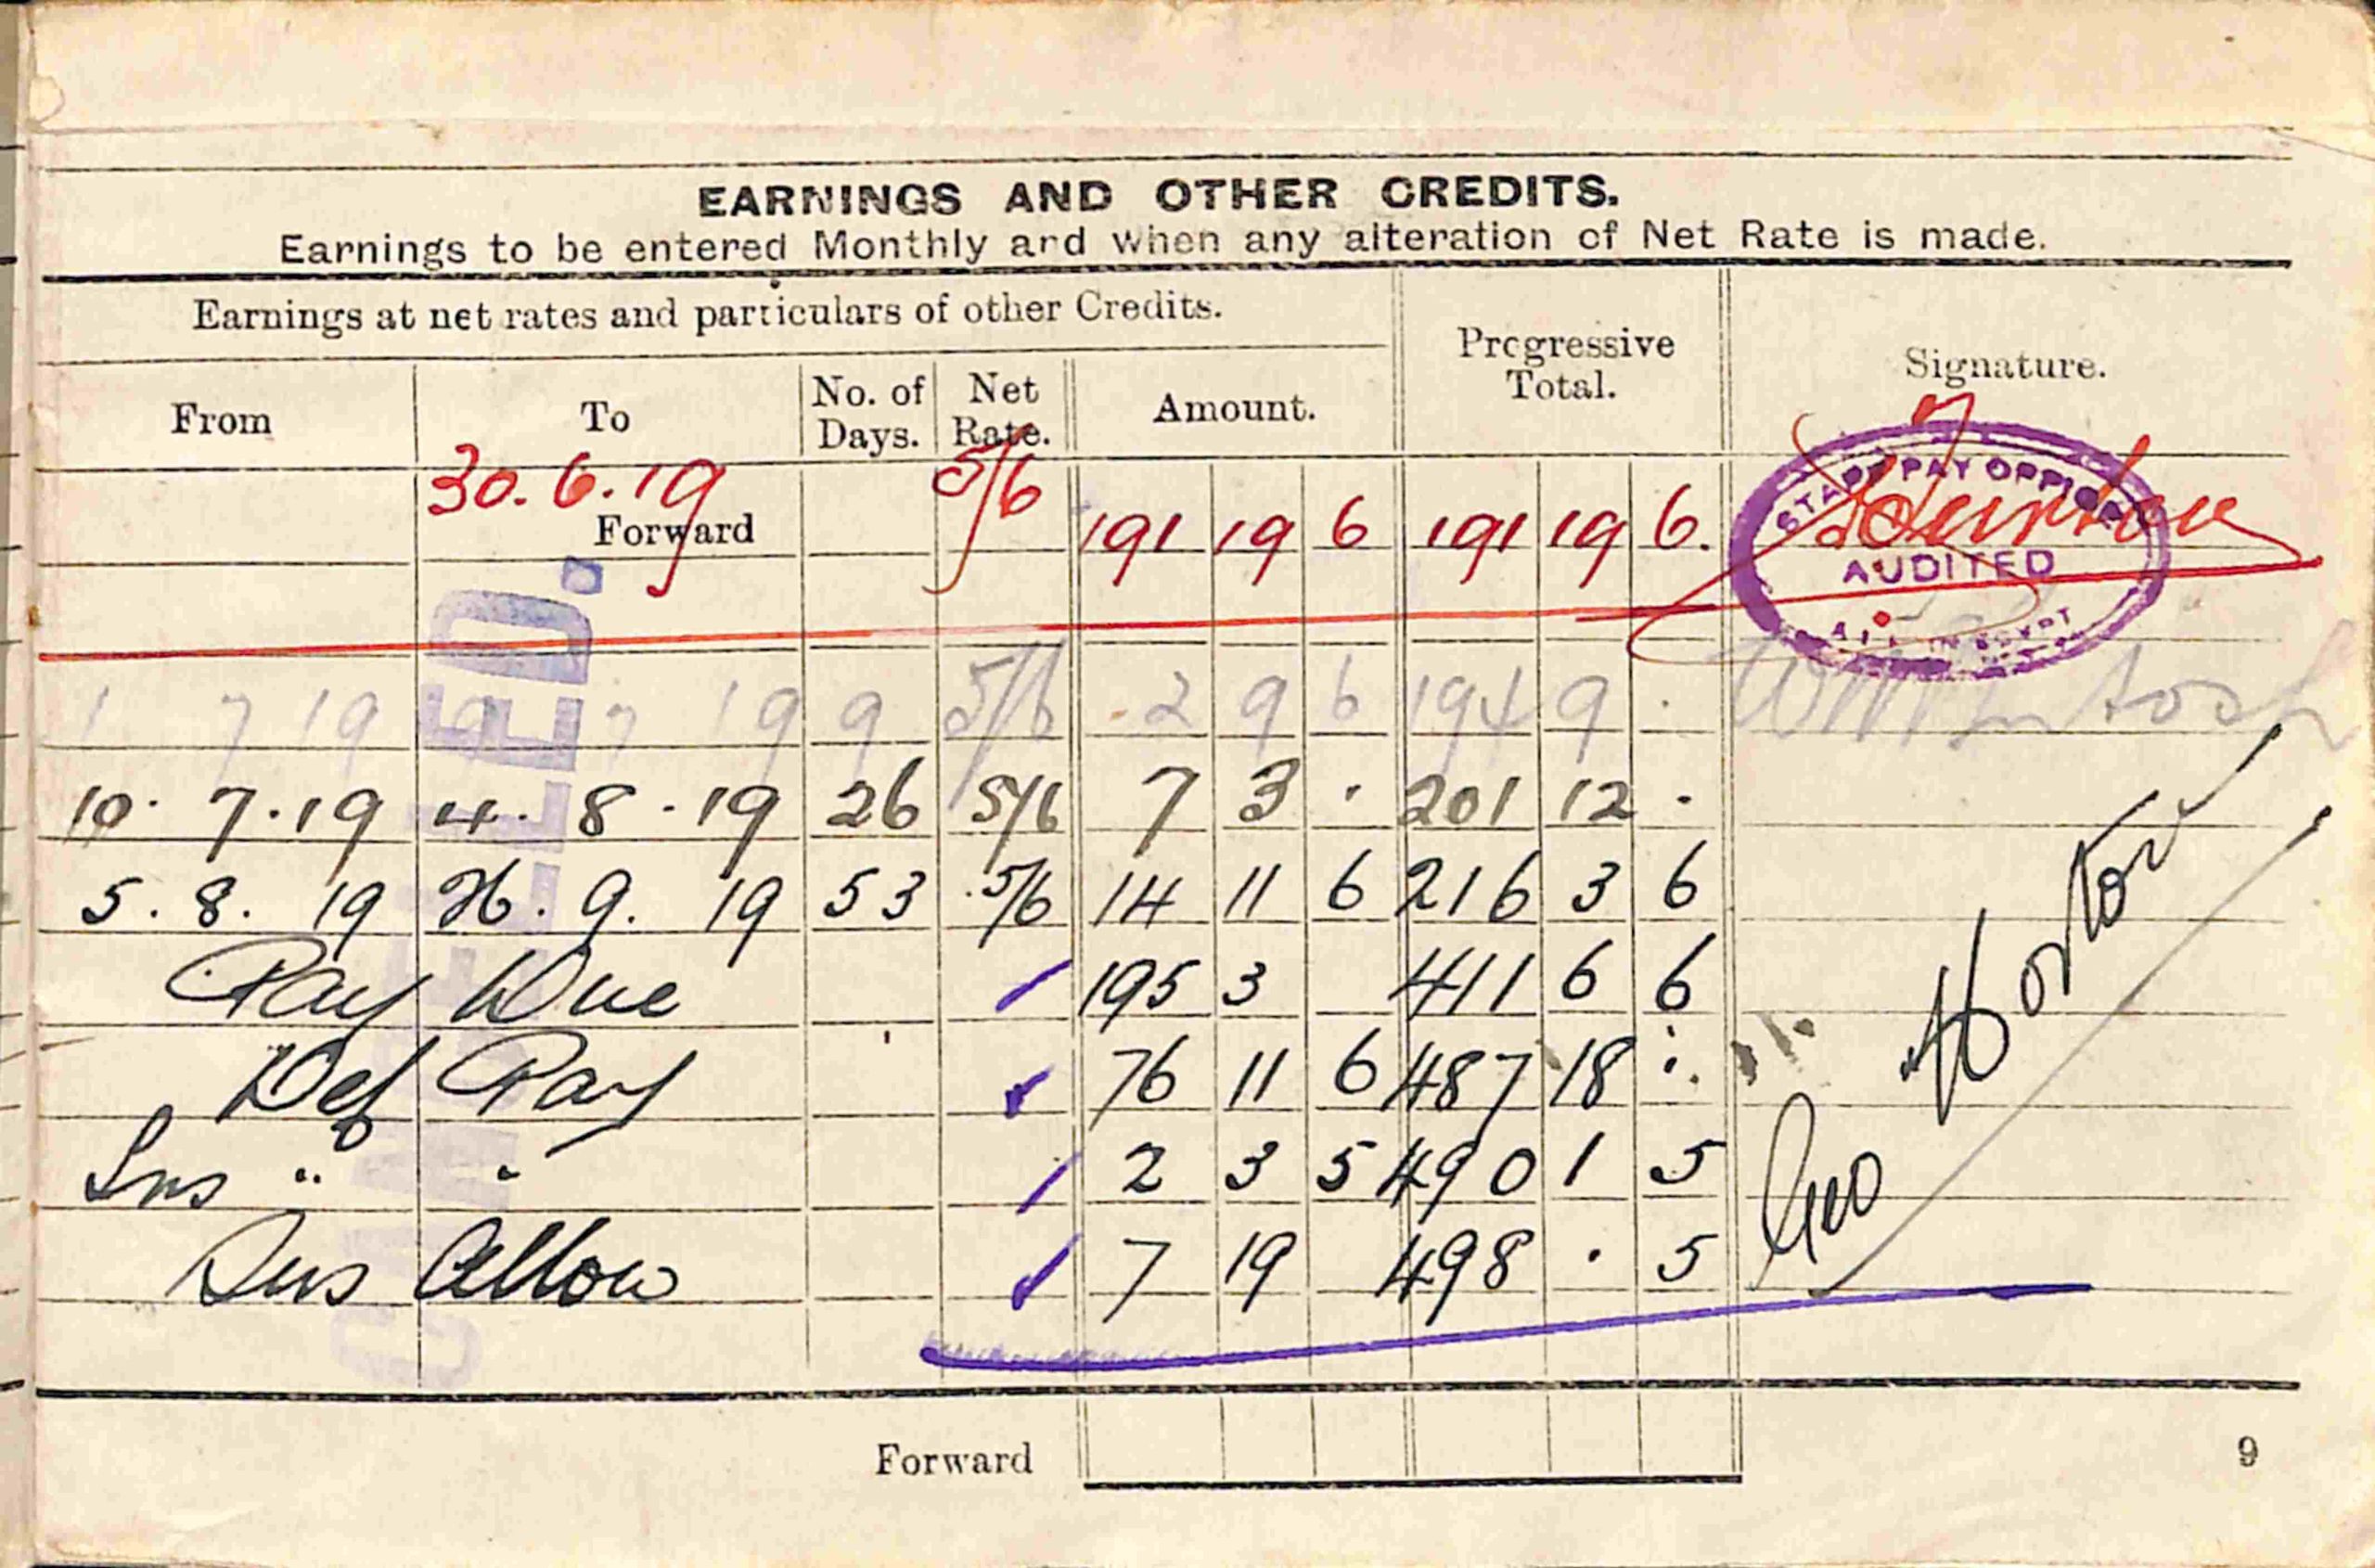 EARNINGS AND OTHER CREDITS.
Earnings to be entered Monthly and when any alteration of Net Rate is made.
Earnings at net rates and particulars of other Credits.
Progressive Total.
Signature.
From To No. of Days. Net Rate. Amount.
30.6.19 Forward 5/6 191 19 6 191 19 6.
STAFF PAY OFFICE
AUDITED
A.I.F. IN EGYPT
1 7 19 9 7 19 9 5/6 2 9 6 194 9 .
10. 7. 19 4. 8. 19 26 5/6 7 3 . 201 12 .
5. 8. 19 26. 9. 19 53 5/6 14 11 6 216 3 6
Pay Due 195 3 411 6 6
Def Pay 76 11 6 487 18 .
" " 2 3 5 490 1 5
Sus Allow 7 19 498 . 5
Geo Horton
CANCELLED.
Forward
9